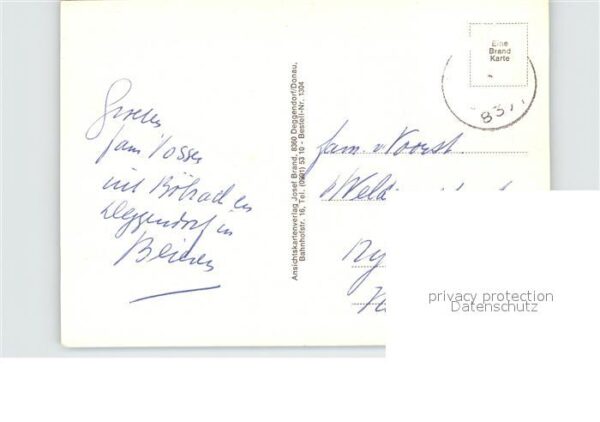 Groeten
fam Vosser
uit Böbrach en
Deggendorf in
Beieren
Ansichtskartenverlag Josef Brand, 8360 Deggendorf/Donau,
Bahnhofstr. 16, Tel. (0991) 53 10 - Bestell-Nr. 1304
Eine
Brand
Karte
837
fam. v Voorst
privacy protection
Datenschutz